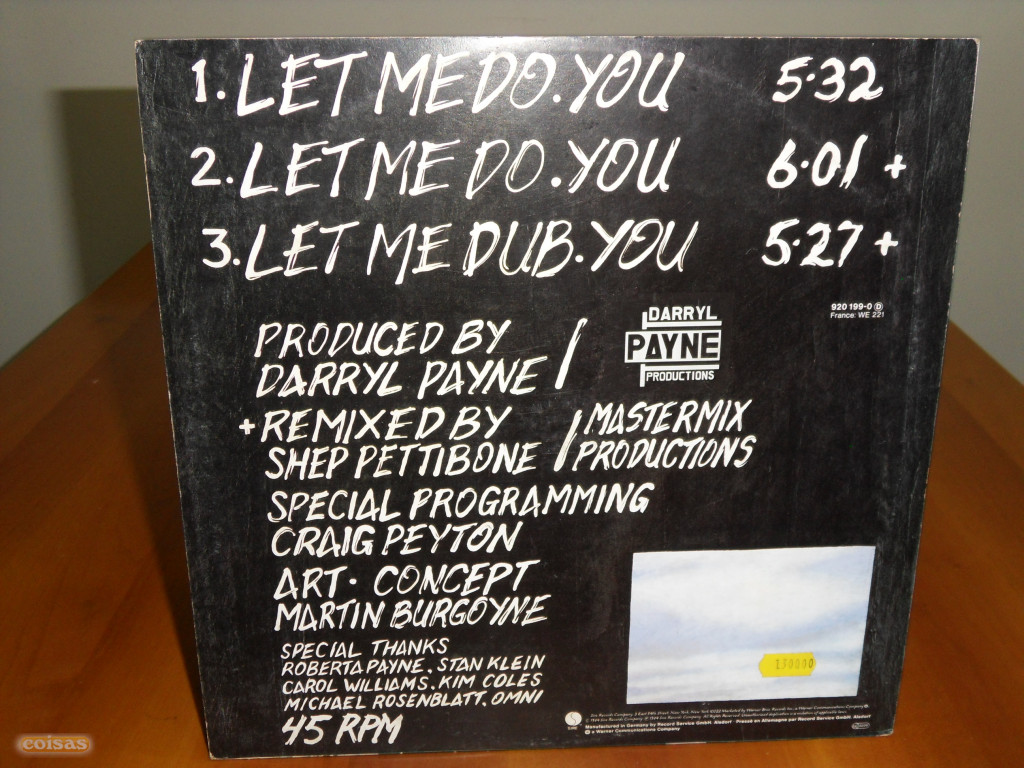 1. LET ME DO. YOU 5·32
2. LET ME DO. YOU 6·01 +
3. LET ME DUB. YOU 5·27 +
920 199-0
France: WE 221
PRODUCED BY
DARRYL PAYNE /
DARRYL
PAYNE
PRODUCTIONS
+ REMIXED BY
SHEP PETTIBONE /
MASTERMIX
PRODUCTIONS
SPECIAL PROGRAMMING
CRAIG PEYTON
ART· CONCEPT
MARTIN BURGOYNE
SPECIAL THANKS
ROBERTA PAYNE. STAN KLEIN
CAROL WILLIAMS. KIM COLES
MICHAEL ROSENBLATT. OMNI
45 RPM
Manufactured in Germany by Record Service GmbH, Alsdorf
a Warner Communications Company
coisas